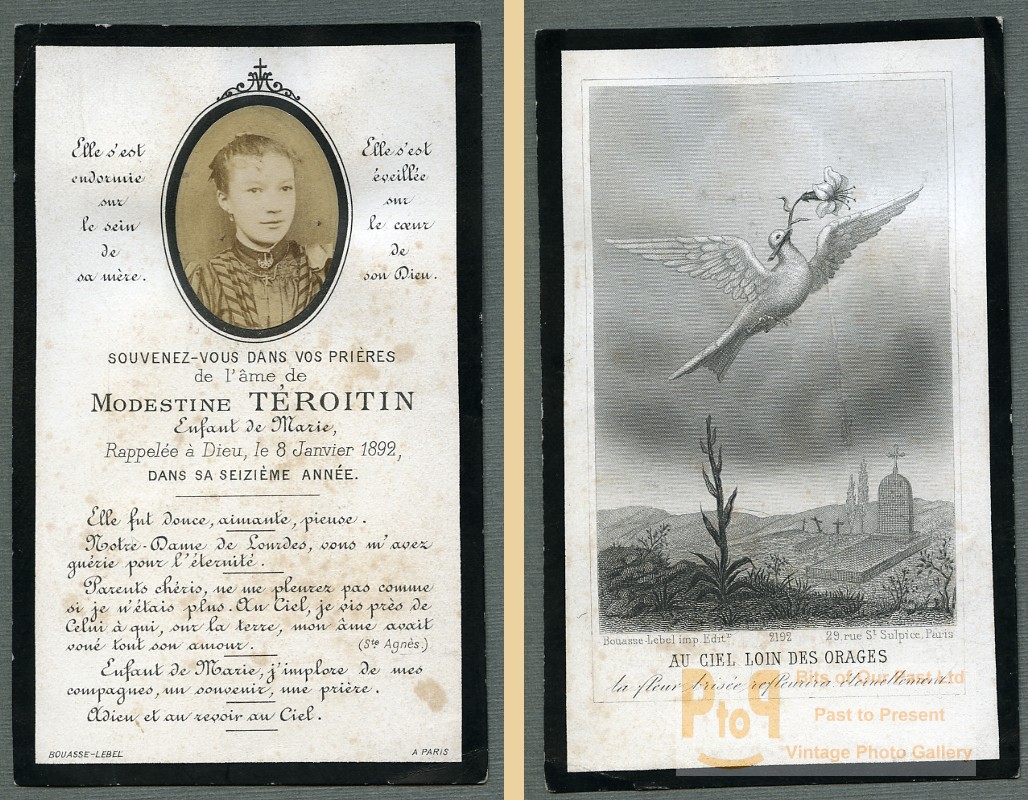 Elle s'est
endormie
sur
le sein
de
sa mère.
Elle s'est
éveillée
sur
le cœur
de
son Dieu.
SOUVENEZ-VOUS DANS VOS PRIÈRES
de l'âme de
MODESTINE TÉROITIN
Enfant de Marie,
Rappelée à Dieu, le 8 Janvier 1892,
DANS SA SEIZIÈME ANNÉE.
Elle fut douce, aimante, pieuse.
Notre-Dame de Lourdes, vous m'avez
guérie pour l'éternité.
Parents chéris, ne me pleurez pas comme
si je n'étais plus. Au Ciel, je vis près de
Celui à qui, sur la terre, mon âme avait
voué tout son amour. (Ste Agnès.)
Enfant de Marie, j'implore de mes
compagnes, un souvenir, une prière.
Adieu et au revoir au Ciel.
BOUASSE-LEBEL A PARIS
Bouasse-Lebel imp. Editr. 2192 29, rue St Sulpice, Paris
AU CIEL LOIN DES ORAGES
la fleur brisée refleurira éternellement.
PtoP
Bits of Our Past Ltd
Past to Present
Vintage Photo Gallery